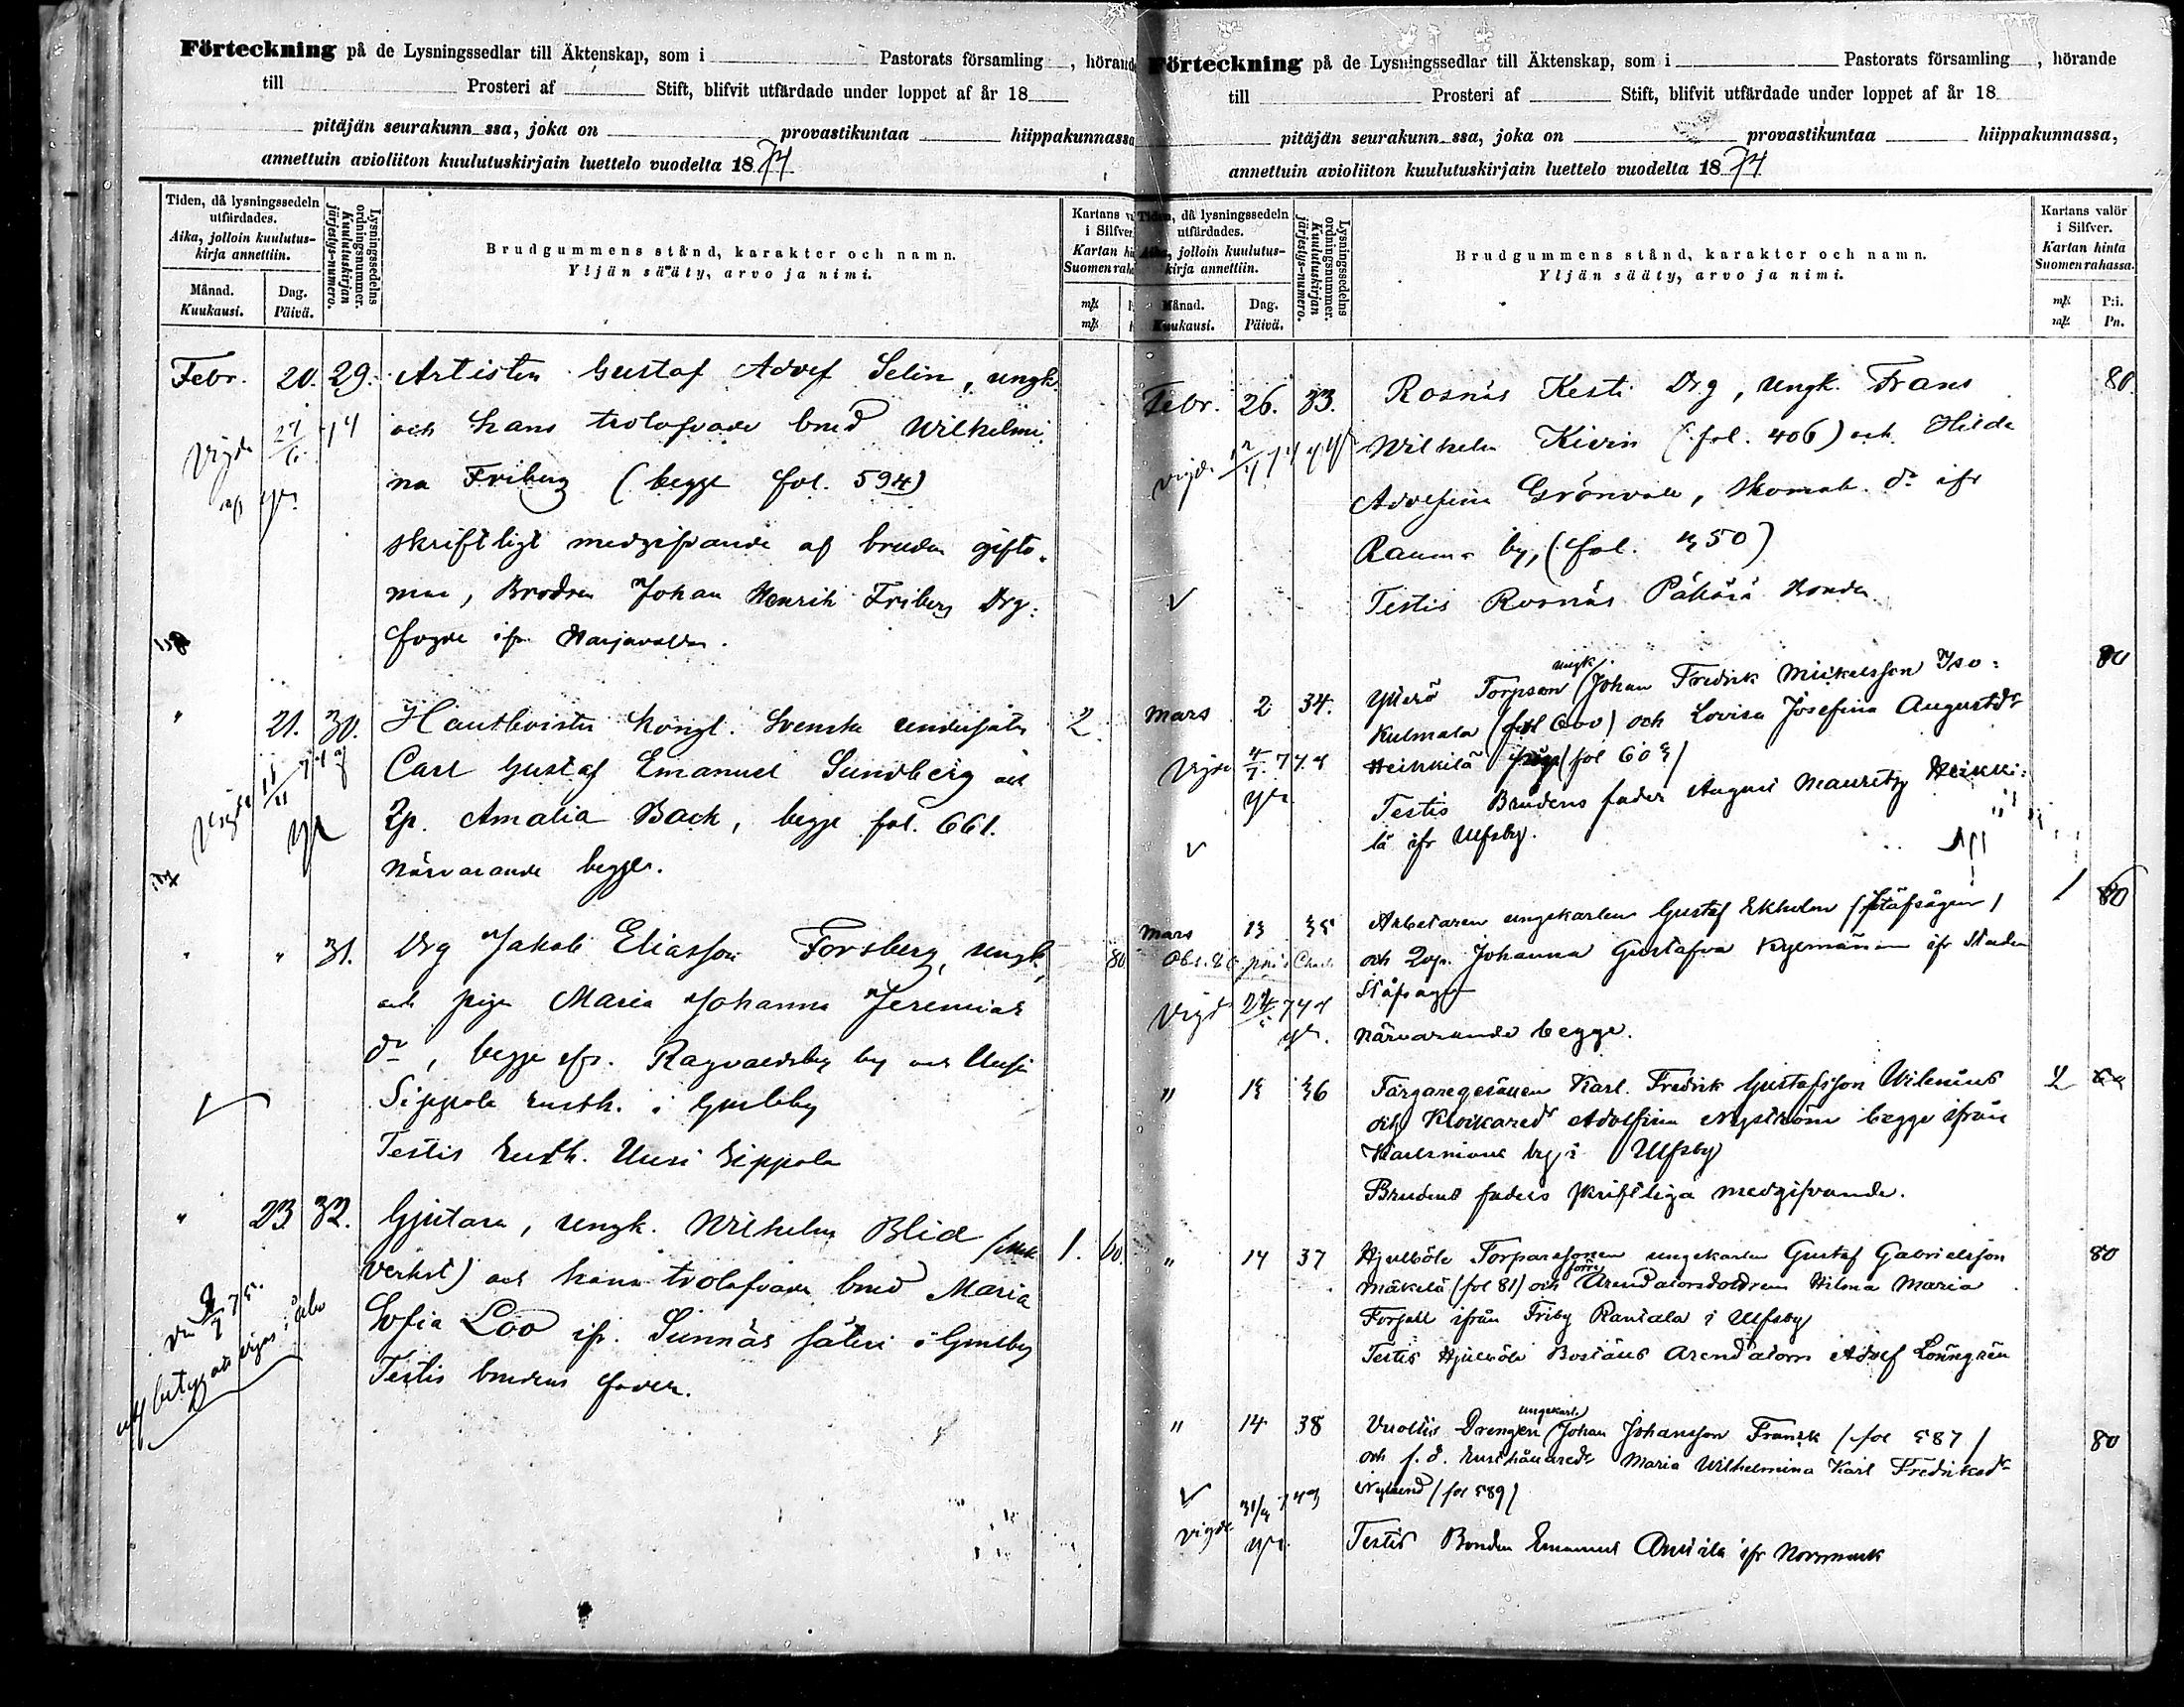 Förteckning på de Lysningssedlar till Äktenskap, som i Pastorats församling , hörande
till Prosteri af Stift, blifvit utfärdade under loppet af år 18
pitäjän seurakunn ssa, joka on provastikuntaa hiippakunnassa
annettuin avioliiton kuulutuskirjain luettelo vuodelta 1874
Tiden, då lysningssedeln utfärdades.
Aika, jolloin kuulutus-kirja annettiin.
Månad.
Kuukausi.
Dag.
Päivä.
Lysningssedelns ordningsnummer.
Kuulutuskirjan järjestys-numero.
Brudgummens stånd, karakter och namn.
Yljän sääty, arvo ja nimi.
Kartans
i Silfver.
Kartan
Suomen
Febr. 20. 29. Artisten Gustaf Adolf Selin, ungk.
Vigde och hans trolofvade brud Wilhelmi
na Friberg (begge fol. 594)
skriftligt medgifvande af bruden gifto-
man, Brodren Johan Henrik Friberg Drg.
fogde ifr. Harjavalda.
" 21. 30. Hautboisten Kongl. Svenska undersåten 2.
Carl Gustaf Emanuel Sundberg och
Vigde Qp. Amalia Back, begge fol. 661.
Närvarande begge.
" " 31. Drg Jakob Eliasson Forsberg, ungk, 80
och pigan Maria Johanna Jeremias
dr, begge ifr. Ragvaldsby by och Uusi
Sippola rusth. i Gumlby
Testis rusth. Uusi Sippola
" 23 32. Gjutaren, ungk. Wilhelm Blid 1. 60.
verkst) och hans trolofvade brud Maria
Sofia Löö ifr. Sunnäs säteri i
Testis brudens fader.
Förteckning på de Lysningssedlar till Äktenskap, som i Pastorats församling , hörande
till Prosteri af Stift, blifvit utfärdade under loppet af år 18
pitäjän seurakunn ssa, joka on provastikuntaa hiippakunnassa,
annettuin avioliiton kuulutuskirjain luettelo vuodelta 1874
Tiden, då lysningssedeln utfärdades.
Aika, jolloin kuulutus-kirja annettiin.
Månad.
Kuukausi.
Dag.
Päivä.
Lysningssedelns ordningsnummer.
Kuulutuskirjan järjestys-numero.
Brudgummens stånd, karakter och namn.
Yljän sääty, arvo ja nimi.
Kartans valör i Silfver.
Kartan hinta Suomen rahassa.
P:i.
Pn.
Febr. 26. 33. Rosnäs Kesti Drg, ungk. Frans 80.
Vigde Wilhelm Kivin (fol. 406) och Hilda
Adolfina Grönvall, skomak. dr ifr
Rauma by, (fol. 450)
Testis Rosnäs Päkärä Bonden
Mars 2 34. Ytterö Torpson ungk. Johan Fredrik Mickelsson Iso- 80
Kulmala (fol 600) och Lovisa Josefina Augustdr
Vigde Heikkilä (fol 603)
Testis Brudens fader August Mauritz Heikki-
lä ifr Ulfsby.
Mars 13 35 Arbetaren ungekarlen Gustaf Ekholm 1 80
och Qvp. Johanna Gustafva Kylmänen ifr Staden
Vigde
Närvarande begge.
" 13 36 Färgaregesällen Karl Fredrik Gustafsson Wilenius 2
och Klockaredr Adolfina Nyström begge ifrån
Karlsmark by i Ulfsby
Brudens faders skriftliga medgifvande.
" 14 37 Hjulböle Torparesonen ungekarlen Gustaf Gabrielsson 80
Mäkelä (fol 81) och förre Arendatorsdottren Hilma Maria
Forsell ifrån Friby Rantala i Ulfsby
Testis Hjulböle Boställs Arendatorn Adolf Lönngrén
" 14 38 Vuoltis Drengen ungekarl. Johan Johansson Fransk (fol 587) 80
och f. d. rusthållaredr Maria Wilhelmina Karl Fredriksdr
Nylund (fol 589)
Vigde
Testis Bonden Emanuel Anttila ifr Norrmark